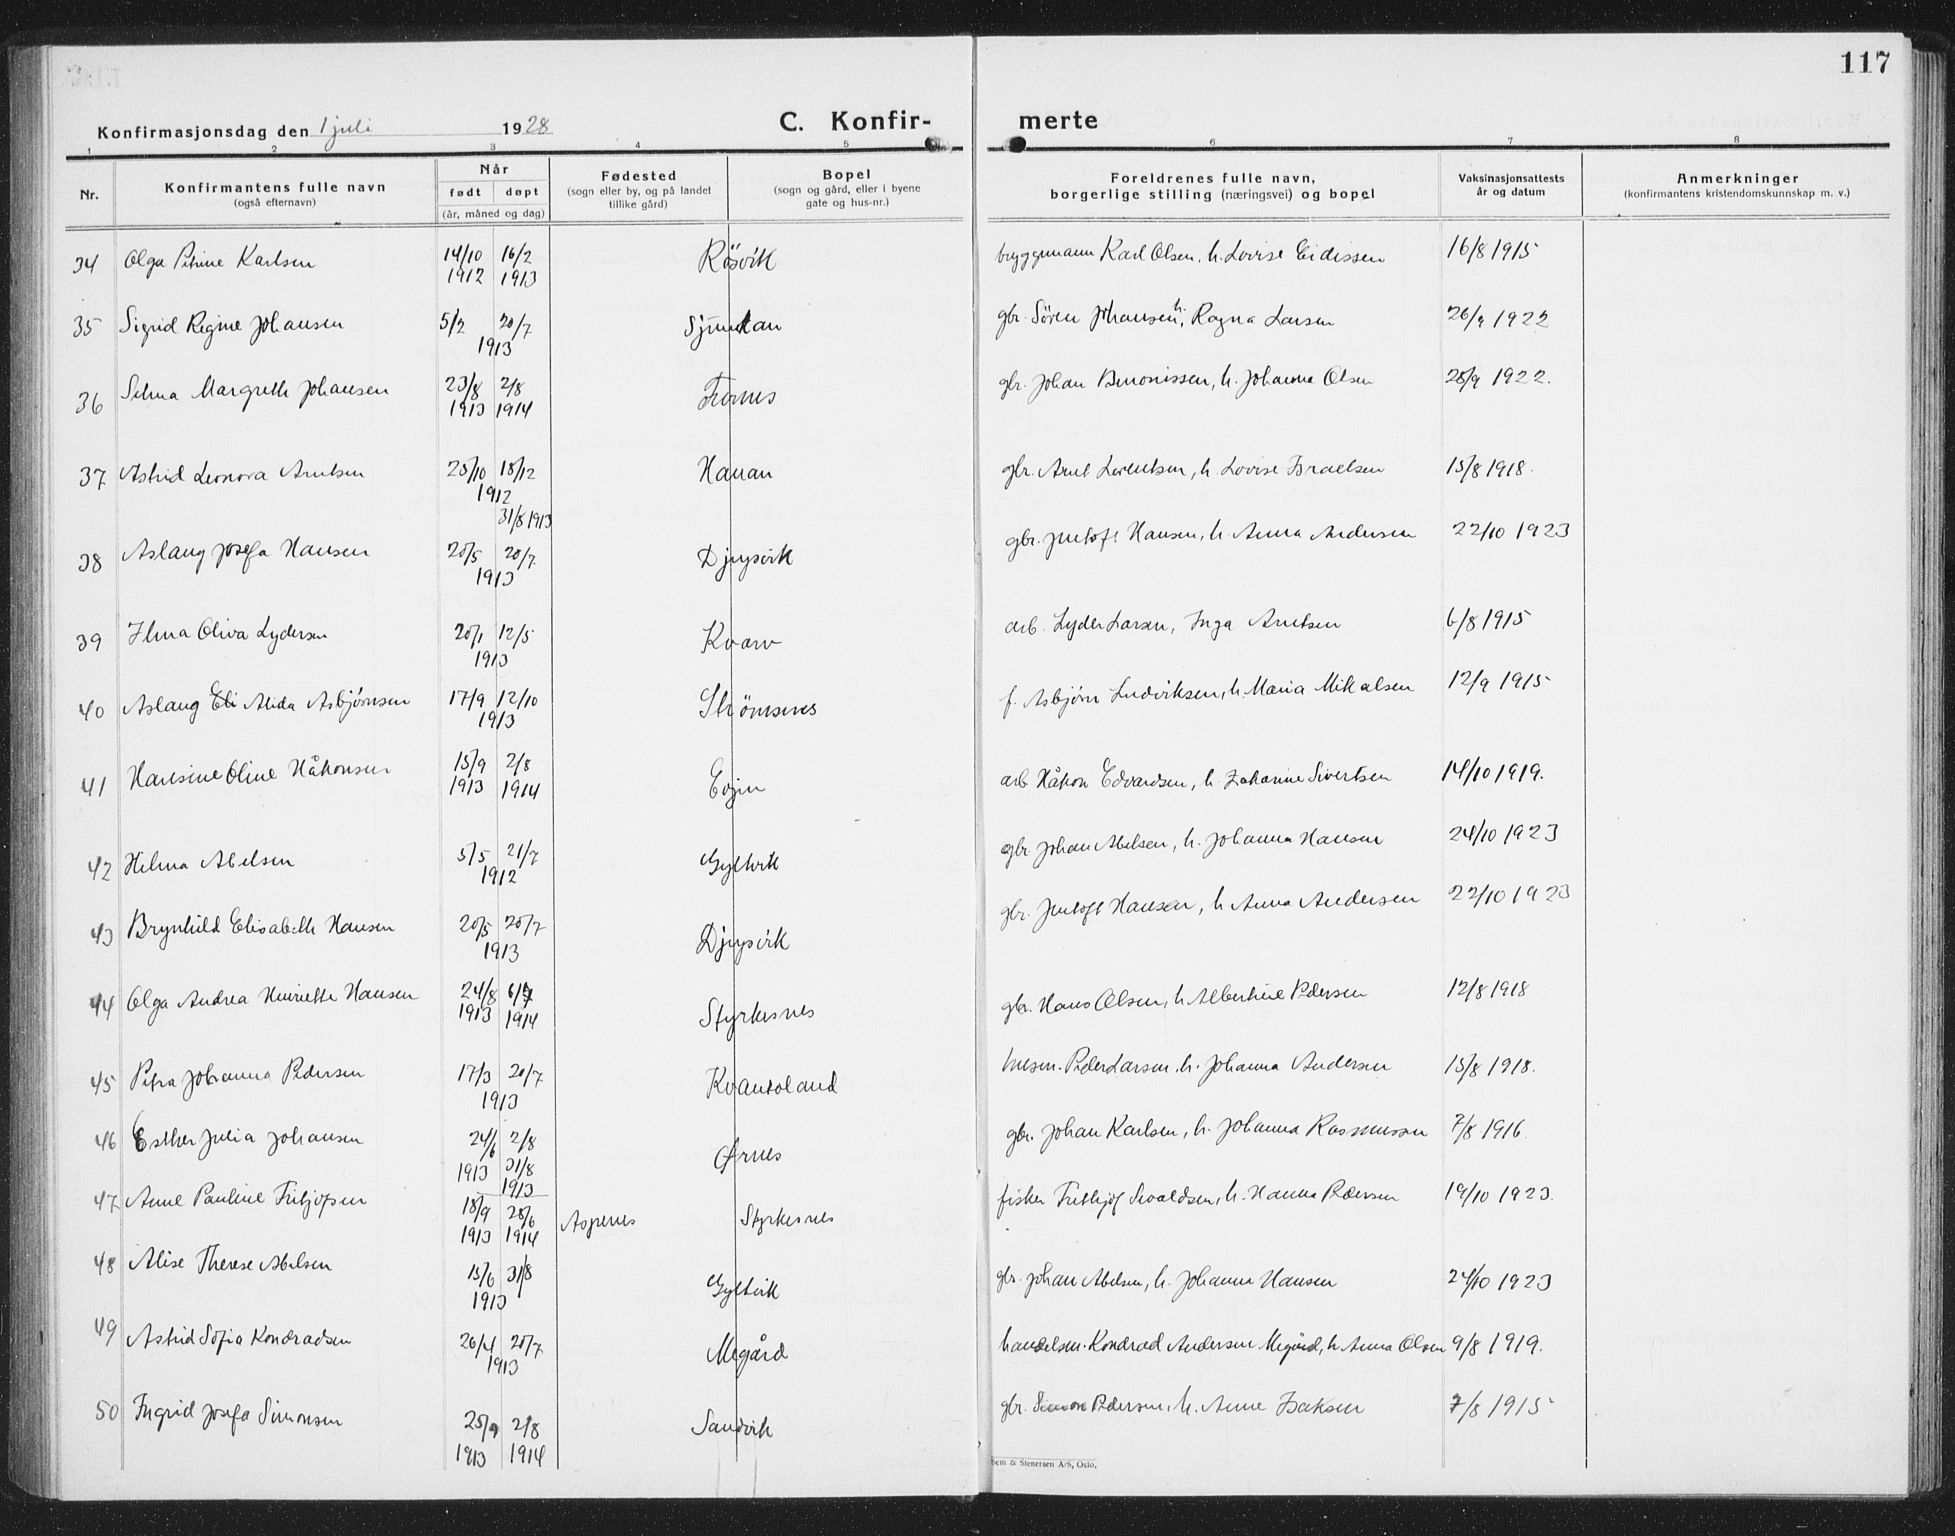 117
Konfirmasjonsdag den 1 juli 1928
C. Konfir- merte
1 2 3 4 5 6 7 8
Nr.
Konfirmantens fulle navn
(også efternavn)
Når
født døpt
(år, måned og dag)
Fødested
(sogn eller by, og på landet
tillike gård)
Bopel
(sogn og gård, eller i byene
gate og hus-nr.)
Foreldrenes fulle navn,
borgerlige stilling (næringsvei) og bopel
Vaksinasjonsattests
år og datum
Anmerkninger
(konfirmantens kristendomskunnskap m. v.)
34 Olga Petrine Karlsen 14/10 1912 16/2 1913 Røsvik bryggemann Karl Olsen, h. Lovise Eidissen 16/8 1915
35 Sigrid Regine Johansen 5/2 20/7 1913 Sjunkan gbr. Sören Johansen, h. Ragna Larsen 26/9 1922
36 Selma Margreth Johansen 23/8 1913 2/8 1914 Fornes gbr. Johan Benonissen, h. Johanna Olsen 28/9 1922.
37 Astrid Leonora Arntsen 25/10 18/12 1912 Hanan gbr. Arnt Lorentsen, h. Lovise Israelsen 15/8 1918.
31/8 1913
38 Aslaug Josefa Hansen 20/5 20/7 1913 Djupvik gbr. Jentoft Hansen, h. Anna Andersen 22/10 1923
39 Ilma Oliva Lydersen 20/1 12/5 1913 Kvarv arb. Lyder Larsen, Inga Arntsen 6/8 1915
40 Aslaug Eli Alida Asbjörnsen 17/9 12/10 1913 Strömsnes f. Asbjörn Ludviksen, h. Maria Mikalsen 12/9 1915
41 Hansine Oline Håkonsen 15/9 1913 2/8 1914 Evjen arb Håkon Edvardsen, h. Zakarine Sivertsen 14/10 1919.
42 Helma Abelsen 5/5 21/7 1912 Gyltvik gbr. Johan Abelsen, h. Johanna Hansen 24/10 1923
43 Brynhild Elisabeth Hansen 20/5 20/7 1913 Djupvik gbr. Jentoft Hansen, h Anna Andersen 22/10 1923
44 Olga Andrea Henriette Hansen 24/8 1913 1914 Styrkesnes gbr. Hans Olsen, h Albertine Pedersen 12/8 1918
45 Petra Johanna Pedersen 17/3 20/7 1913 Kvantoland husm. Peder Larsen, h. Johanna Andersen 15/8 1918.
46 Esther Julia Johansen 24/6 1913 2/8 31/8 1913 Ørnes gbr. Johan Karlsen, h. Johanna Rasmussen 7/8 1916.
47 Anne Pauline Fritjofsen 18/9 1913 28/6 1914 Aspenes Styrkesnes fisker Frithjof Sivaldsen, h. Hanna Pedersen 19/10 1923.
48 Alise Therese Abelsen 15/6 31/8 1913 Gyltvik gbr. Johan Abelsen, h. Johanna Hansen 24/10 1923
49 Astrid Sofia Kondradsen 26/4 20/7 1913 Megård handelsm. Kondrad Andersen Megård, h Anna Olsen 9/8 1919.
50 Ingrid Josefa Simonsen 25/9 1913 2/8 1914 Sandvik gbr. Simon Pedersen, h. Anne Isaksen 7/8 1915
Sem & Stenersen A/S, Oslo.